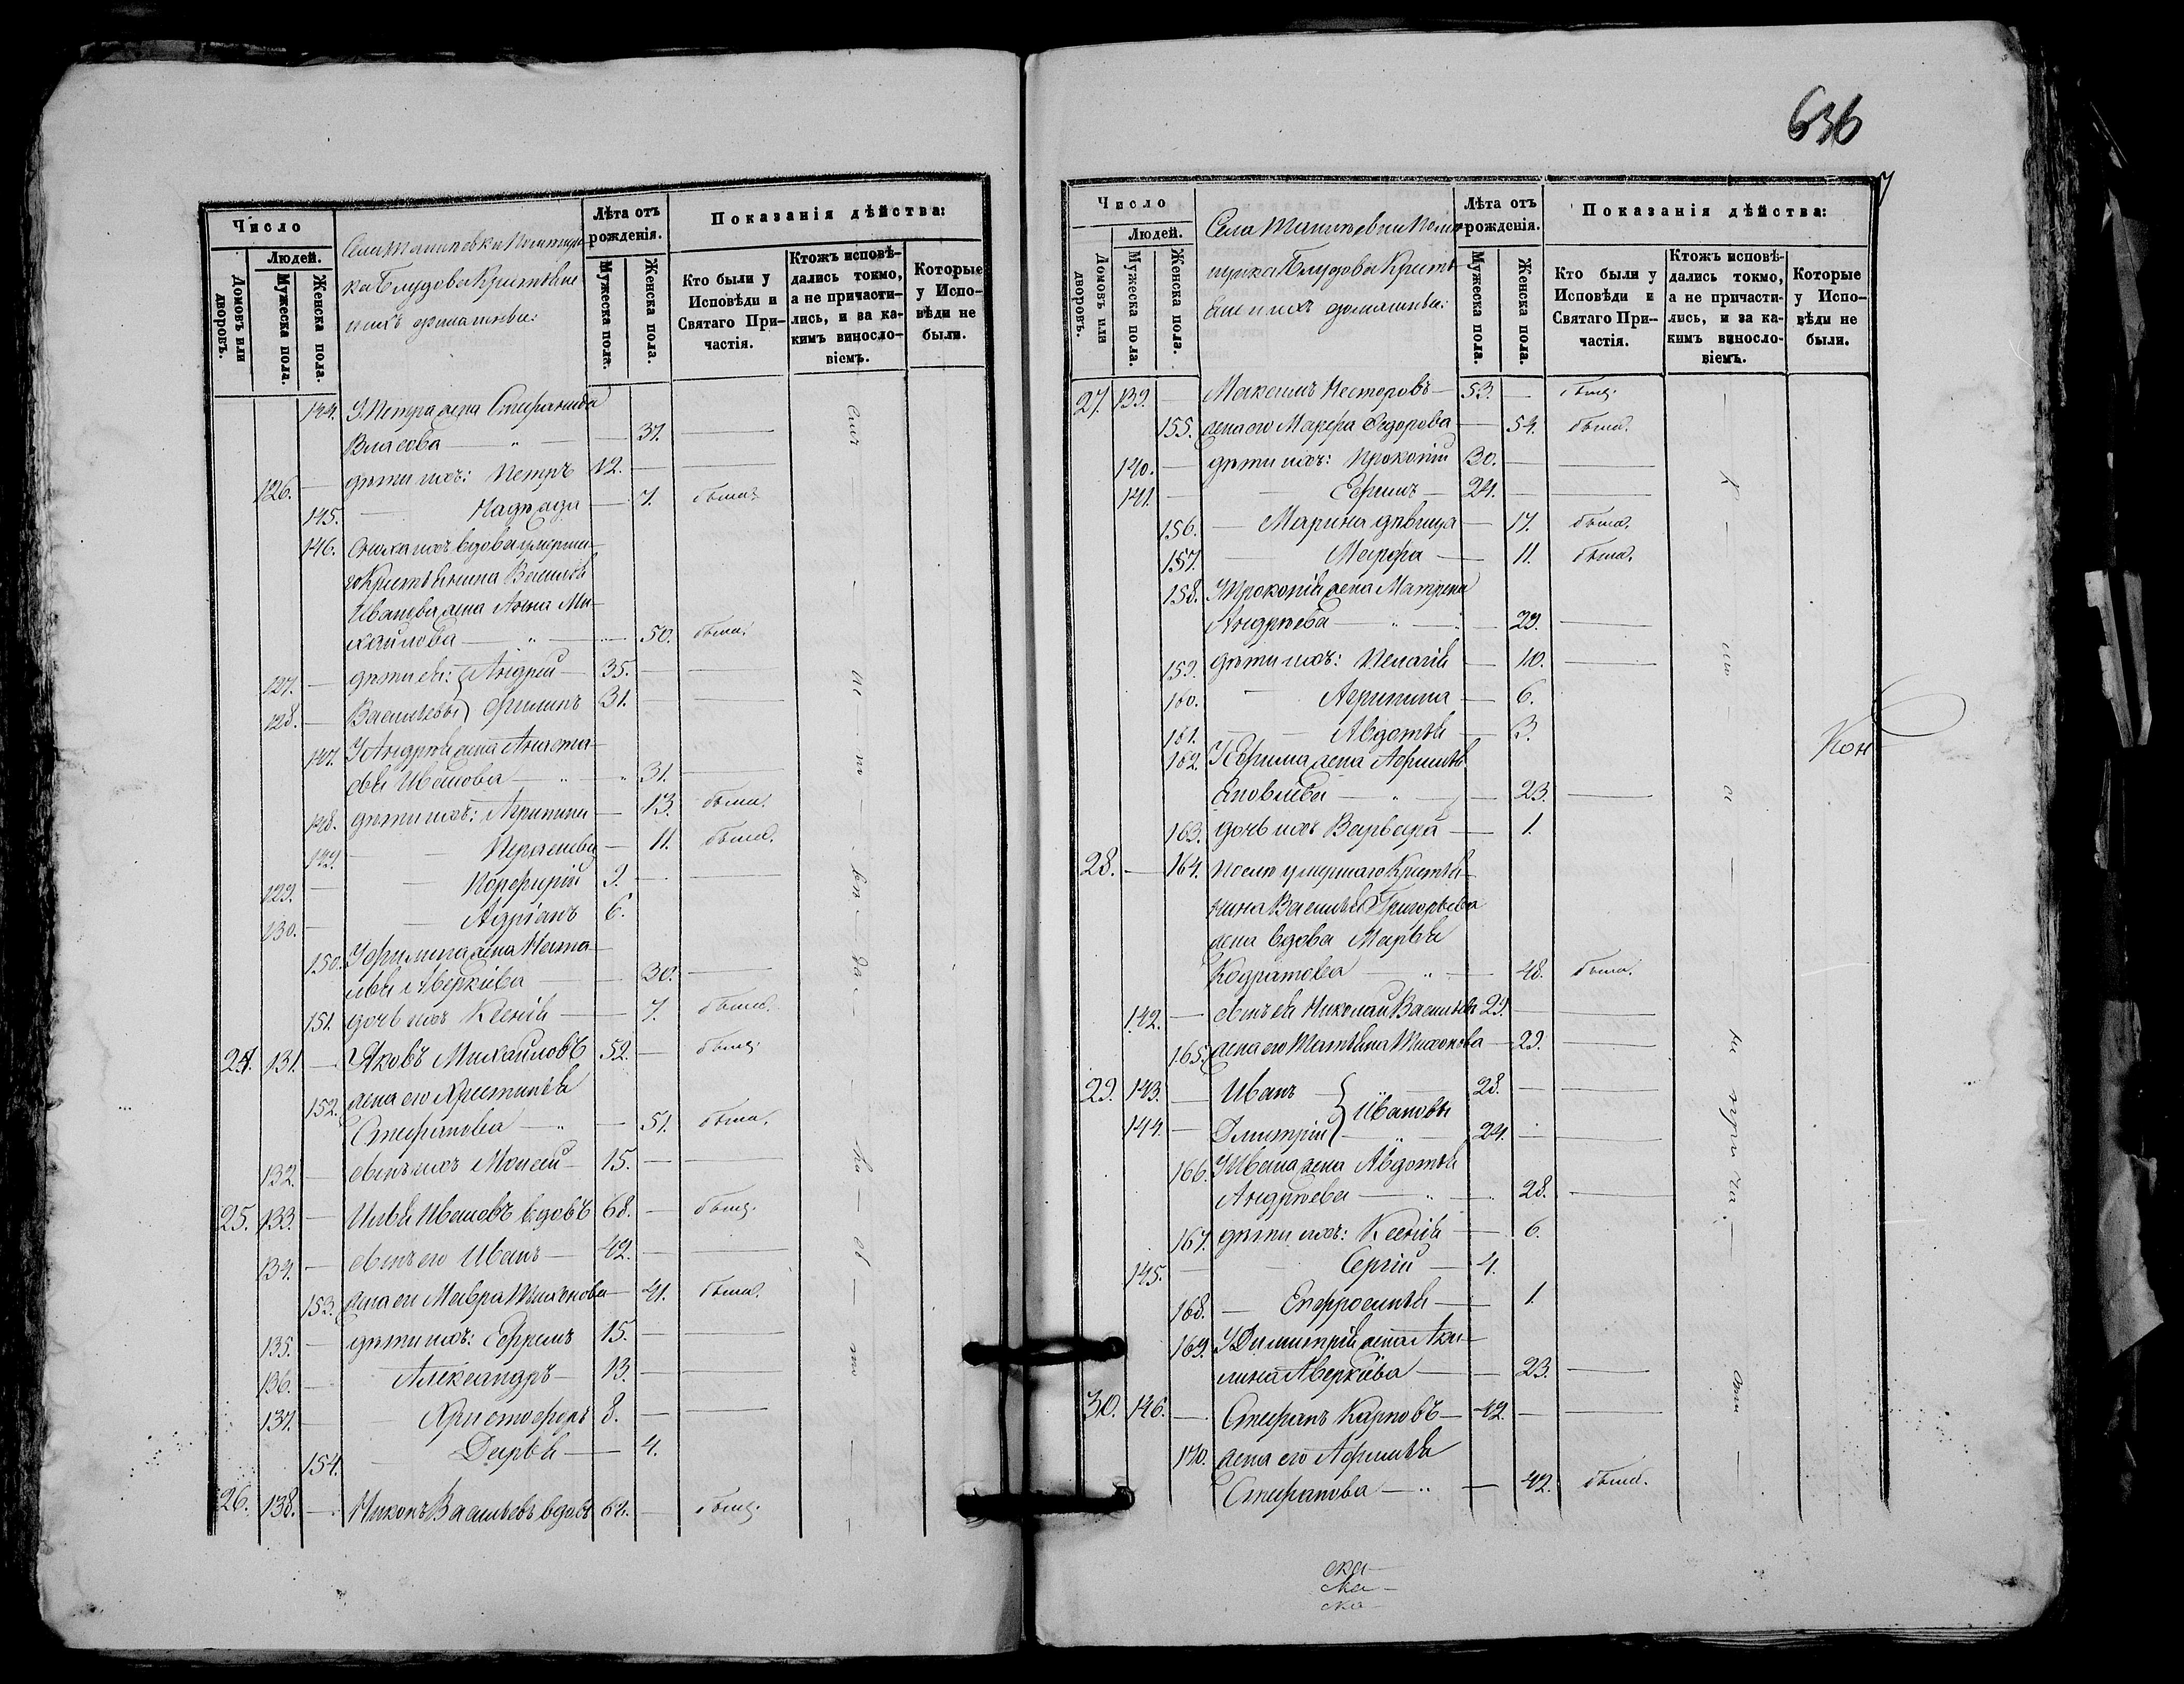 636
7
Число
Людей.
Домовъ или дворовъ.
Мужеска пола.
Женска пола.
Села
ка Блудова Крестьяне
и ихъ домашніи:
Лѣта отъ рожденія.
Мужеска пола.
Женска пола.
Показанія дѣйства:
Кто были у Исповѣди и Святаго При-частія.
Ктожъ исповѣ-дались токмо, а не причасти-лись, и за ка-кимъ винносло-віемъ.
Которые у Испо-вѣди не были.
144. У Петра жена Стефанида
Власова — 37. —
126. — дѣти ихъ: Петръ 12. —
145. — Надежда — 7. была
146. Сноха ихъ вдова умерша-
го Крестьянина Василія
Иванова жена Анна Ми-
хайлова — 50. была.
127. — дѣти ея: Андрей — 35. —
128. — Васильевы Филипъ 31. —
147. У Андрея жена Анаста-
сія Иванова — 31. —
148. дѣти ихъ: Агрипина — 13. была.
149. — — 11. была.
129. — Порфирій 9. —
130. — Адріанъ 6.
150. У Филипа жена Ната-
лія Аверкіева — 30. —
151. дочь ихъ Ксенія — 7. была.
24. 131. — Яковъ Михайловъ 52. — былъ.
152. жена его Христинья
Стефанова — 51. была.
132. — сынъ ихъ Моисей — 15. —
25. 133. — Илья Ивановъ вдовъ 68. — былъ.
134. — сынъ его Иванъ — 42. —
153. жена его Мавра Тихонова — 41. была.
135. — дѣти ихъ: Ефремъ 15. —
136. — Александръ — 13. —
137. — Христофоръ 8. —
154. — Дарья — 4.
26. 138. — Никонъ Васильевъ вдовъ 62. — былъ.
Число
Людей.
Домовъ или дворовъ.
Мужеска пола.
Женска пола.
Села
щика Блудова Кресть-
яне и ихъ домашніи:
Лѣта отъ рожденія.
Мужеска пола.
Женска пола.
Показанія дѣйства:
Кто были у Исповѣди и Святаго При-частія.
Ктожъ исповѣ-дались токмо, а не причасти-лись, и за ка-кимъ виносло-віемъ.
Которые у Испо-вѣди не были.
27. 139. — Максимъ Несторовъ — 53. — былъ.
155. жена его Марфа Федорова — 54. была.
140. — дѣти ихъ: Прокопій 30. —
141. — Ефимъ — 24. —
156. — Марина дѣвица — 17. была.
157. — Марфа — 11. была.
158. У Прокопія жена Матрена
Андреева — 29. —
159. дѣти ихъ: Пелагія — 10. —
160. — Агрипина — 6.
161. — Авдотья — 3.
162. У Ефима жена Афимья
Яковлева — 23. —
163. дочь ихъ Варвара — 1.
28. — 164. После умершаго Крестья-
нина Василья Григорьева
жена вдова Марья
Кодратова — 48. была.
142. — сынъ ея Николай Васильевъ 29. —
165. жена его Татьяна Тихонова — 29. —
29. 143. — Иванъ — 28. —
144. — Димитрій } Ивановы 24. —
166. У Ивана жена Авдотья
Андреева — 28. —
167. дѣти ихъ: Ксенія — 6.
145. — Сергій — 4.
168. — Евфросинья — 1.
169. У Димитрія жена Аки-
лина Аверкіева — 23. —
30. 146. — Стефанъ Карповъ — 42. —
170. жена его Афимья
Стефанова — 42. была.
Кон
ска —
ска —
ска —